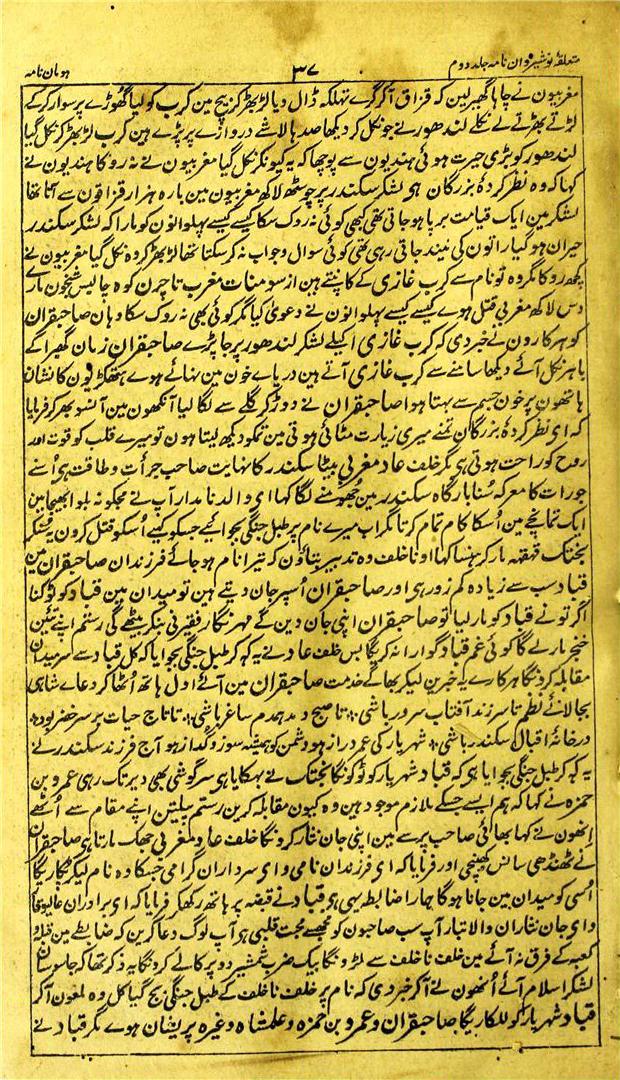 متعلقۂ نوشیروان نامہ جلد دوم
۳۷
ہومان نامہ
مغربیون نے چاہا گھیر لین کہ قزاق آکر گرے تہلکہ ڈال دیا لڑ بھڑ کر بیچ مین کرب کو لیا گھوڑے پر سوار کر کے
لڑتے بھڑتے لے نکلے لندھور نے جو نکل کر دیکھا صدہا لاشے دروازے پر پڑے ہین کرب لڑ بھڑ کر نکل گیا
لندھور کو بڑی حیرت ہوئی ہندیون سے پوچھا کہ یہ کیونکر نکل گیا مغربیون نے نہ روکا ہندیون نے
کہا کہ وہ نظر کردۂ بزرگان ہو لشکر سکندر پر چونسٹھ لاکھ مغربیون مین بارہ ہزار قزاقون سے آتا تھا
لشکر مین ایک قیامت برپا ہو جاتی تھی کبھی کوئی نہ روک سکا کیسے کیسے پہلوانون کو مارا کہ لشکر سکندر
حیران ہو گیا راتون کی نیند جاتی رہی تھی کوئی سوال و جواب نہ کر سکتا تھا لڑ بھڑ کر وہ نکل گیا مغربیون نے
کچھ روکا مگر وہ تو نام سے کرب غازی کے کانپتے ہین از سومنات مغرب تا چرن کوہ چالیس شبخون مارے
دس لاکھ مغربی قتل ہوے کیسے کیسے پہلوانون نے دعویٰ کیا مگر کوئی بھی نہ روک سکا وہان صاحبقران
کو ہرکارون نے خبر دی کہ کرب غازی اکیلے لشکر لندھور پر جا پڑے صاحبقران زمان گھبرا کے
باہر نکل آئے دیکھا سامنے سے کرب غازی آتے ہین دریاے خون مین نہائے ہوے ہتھکڑیون کا نشان
ہاتھون پر خون جسم سے بہتا ہوا صاحبقران نے دوڑ کر گلے سے لگا لیا آنکھون مین آنسو بھر کر فرمایا
کہ ای نظر کردۂ بزرگان تمنے میری زیارت مٹائی ہوتی مین تمکو دیکھ لیتا ہون تو میرے قلب کو قوت اور
روح کو راحت ہوتی ہی مگر خلف عاد مغربی بیٹا سکندر کا نہایت صاحب جرأت و طاقت ہی اُسنے
جو رات کا معرکہ سُنا بارگاہ سکندر مین جھومنے لگا کہا ای والد نامدار آپ نے مجکو نہ بلوا بھیجا مین
ایک تمانچے مین اُسکا کام تمام کرتا مگر اب میرے نام پر طبل جنگی بجوائیے جسکو کہیے اُسکو قتل کرون یہ سُنکر
بختک قہقہہ مار کر ہنسا کہا او ناخلف وہ تدبیر بتاؤن کہ تیرا نام ہو جائے فرزندان صاحبقران مین
قباد سب سے زیادہ کم زور ہی اور صاحبقران اُسپر جان دیتے ہین تو میدان مین قباد کو ٹوکنا
اگر تو نے قباد کو مار لیا تو صاحبقران اپنی جان دین گے مہرنگار فقیرنی بنکر بیٹھے گی رستم اپنے تئین
خنجر مارلے گا کوئی غم قباد گوارا نہ کریگا بس خلف عاد نے یہ کہہ کر طبل جنگی بجوایا کہ کل قباد سے سر میدان
مقابلہ کرونگا ہرکارے یہ خبرین لیکر بھاگے خدمت صاحبقران مین آئے اول ہاتھ اُٹھا کر دعاے شاہی
بجا لائے نظم تا سر زند آفتاب سرور باشی ٭ تا صبح دمد ہمدم ساغر باشی ٭ تا تاج حیات بر سر خضر بود ٭
در خانۂ اقبال سکندر باشی ٭ شہریار کی عمر دراز ہو دشمن کو ہمیشہ سوز و گداز ہو آج فرزند سکندر نے
یہ کہہ کر طبل جنگی بجوایا ہی کہ قباد شہریار کو ٹوکونگا بختک نے بہکایا ہی سرگوشی بھی دیر تک رہی عمرو بن
حمزہ نے کہا کہ ہم ایسے جسکے ملازم موجود ہین وہ کیون مقابلہ کرین رستم پیلتن اپنے مقام سے اُٹھے
اِنھون نے کہا بھائی صاحب پر سے مین اپنی جان نثار کرونگا خلف عاد مغربی جھک مارتا ہی صاحبقران
نے ٹھنڈھی سانس کھینچی اور فرمایا کہ ای فرزندان نامی و ای سرداران گرامی جسکا وہ نام لیکر پکاریگا
اُسی کو میدان مین جانا ہوگا ہمارا ضابطہ یہی ہی قباد نے قبضہ پر ہاتھ رکھکر فرمایا کہ ای برادران عالیوقار
و ای جان نثاران والا تبار آپ سب صاحبون کو مجھسے محبت قلبی ہی آپ لوگ دعا کرین کہ ضابطے مین قبلہ و
کعبہ کے فرق نہ آئے مین خلف ناخلف سے لڑونگا بیک ضرب شمشیر دو پرکالے کرونگا یہ ذکر تھا کہ جاسوسان
لشکر اسلام آئے اُنھون نے آکر خبر دی کہ نام پر خلف ناخلف کے طبل جنگی بج گیا کل وہ ملعون آکر
قباد شہریار کو للکاریگا صاحبقران و عمرو بن حمزہ و علمشاہ وغیرہ پریشان ہوے مگر قباد نے